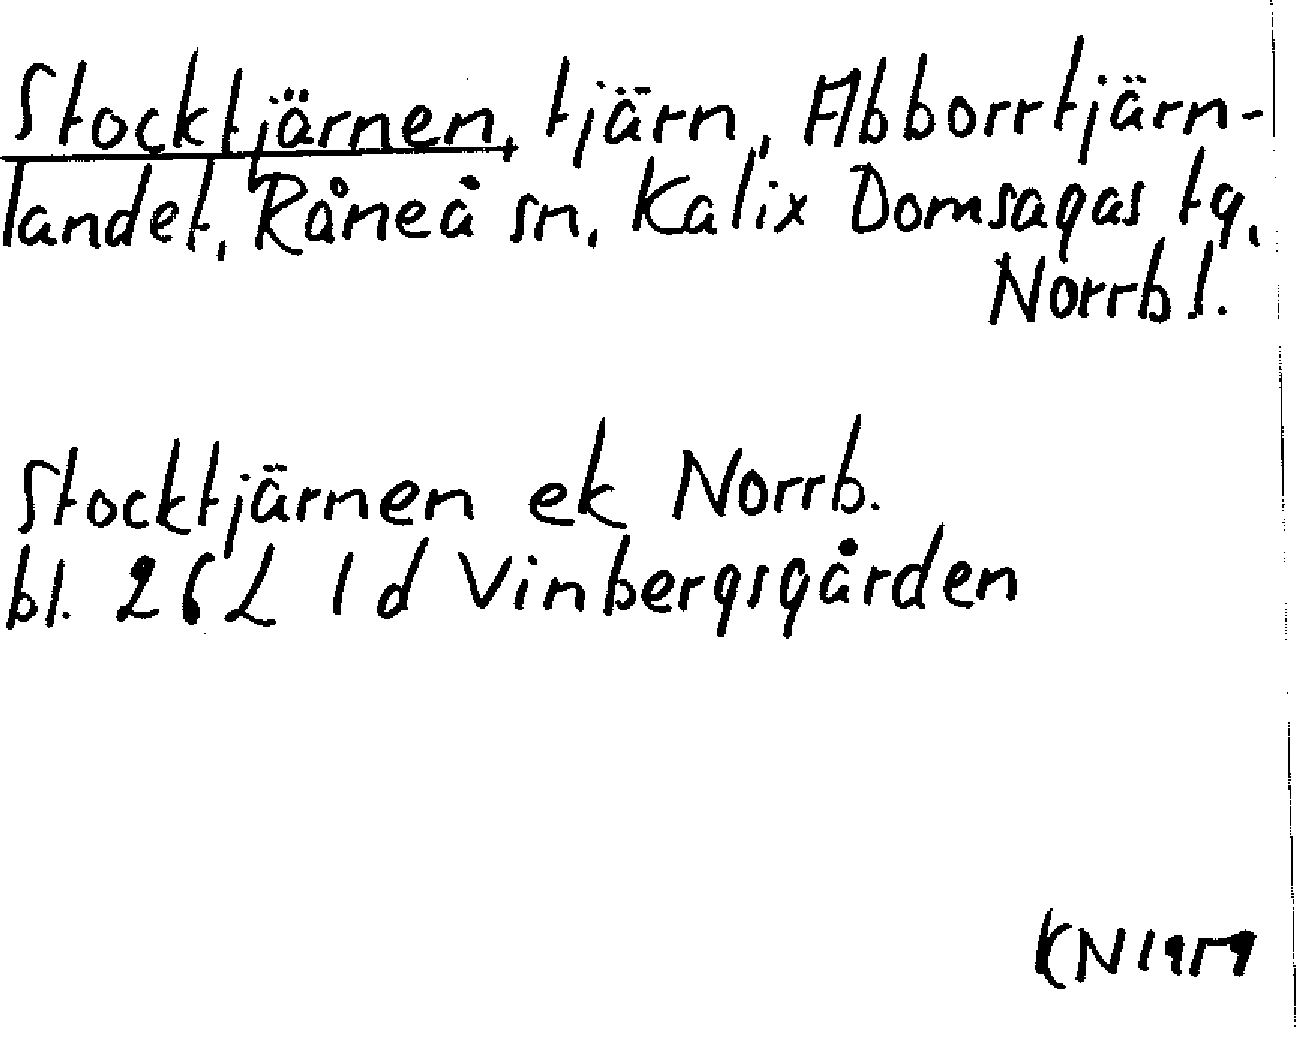 Stocktjärnen, tjärn, Abborrtjärn-
landet, Råneå sn, Kalix Domsagas tg,
Norrb l.
Stocktjärnen ek Norrb.
bl. 26L 1d Vinbergsgården
KN 1959